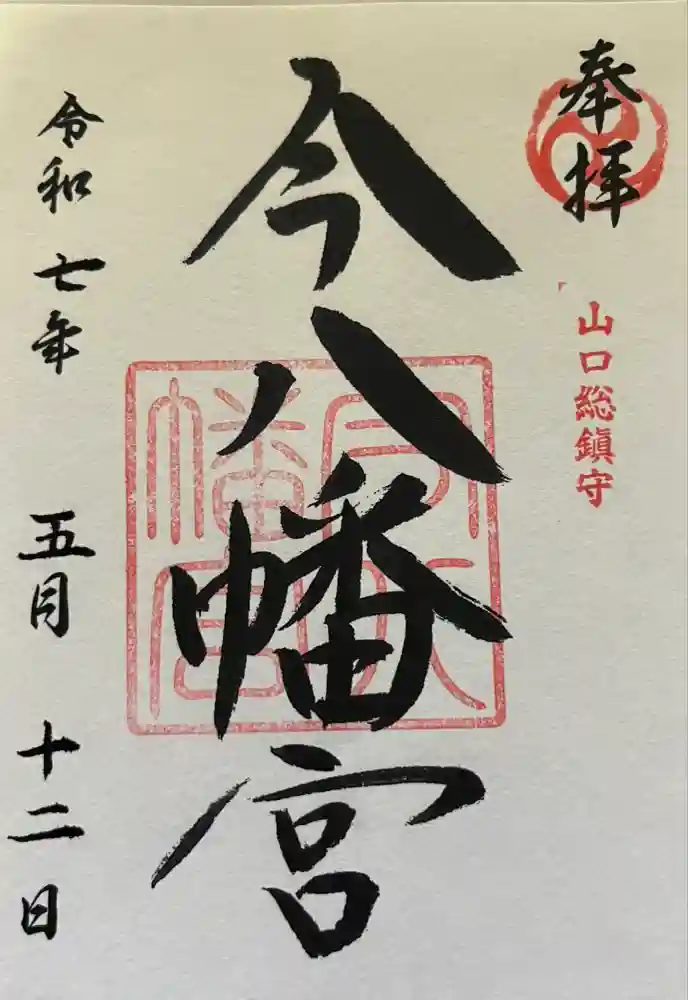 奉拝
山口総鎮守
今八幡宮
令和七年 五月 十二日